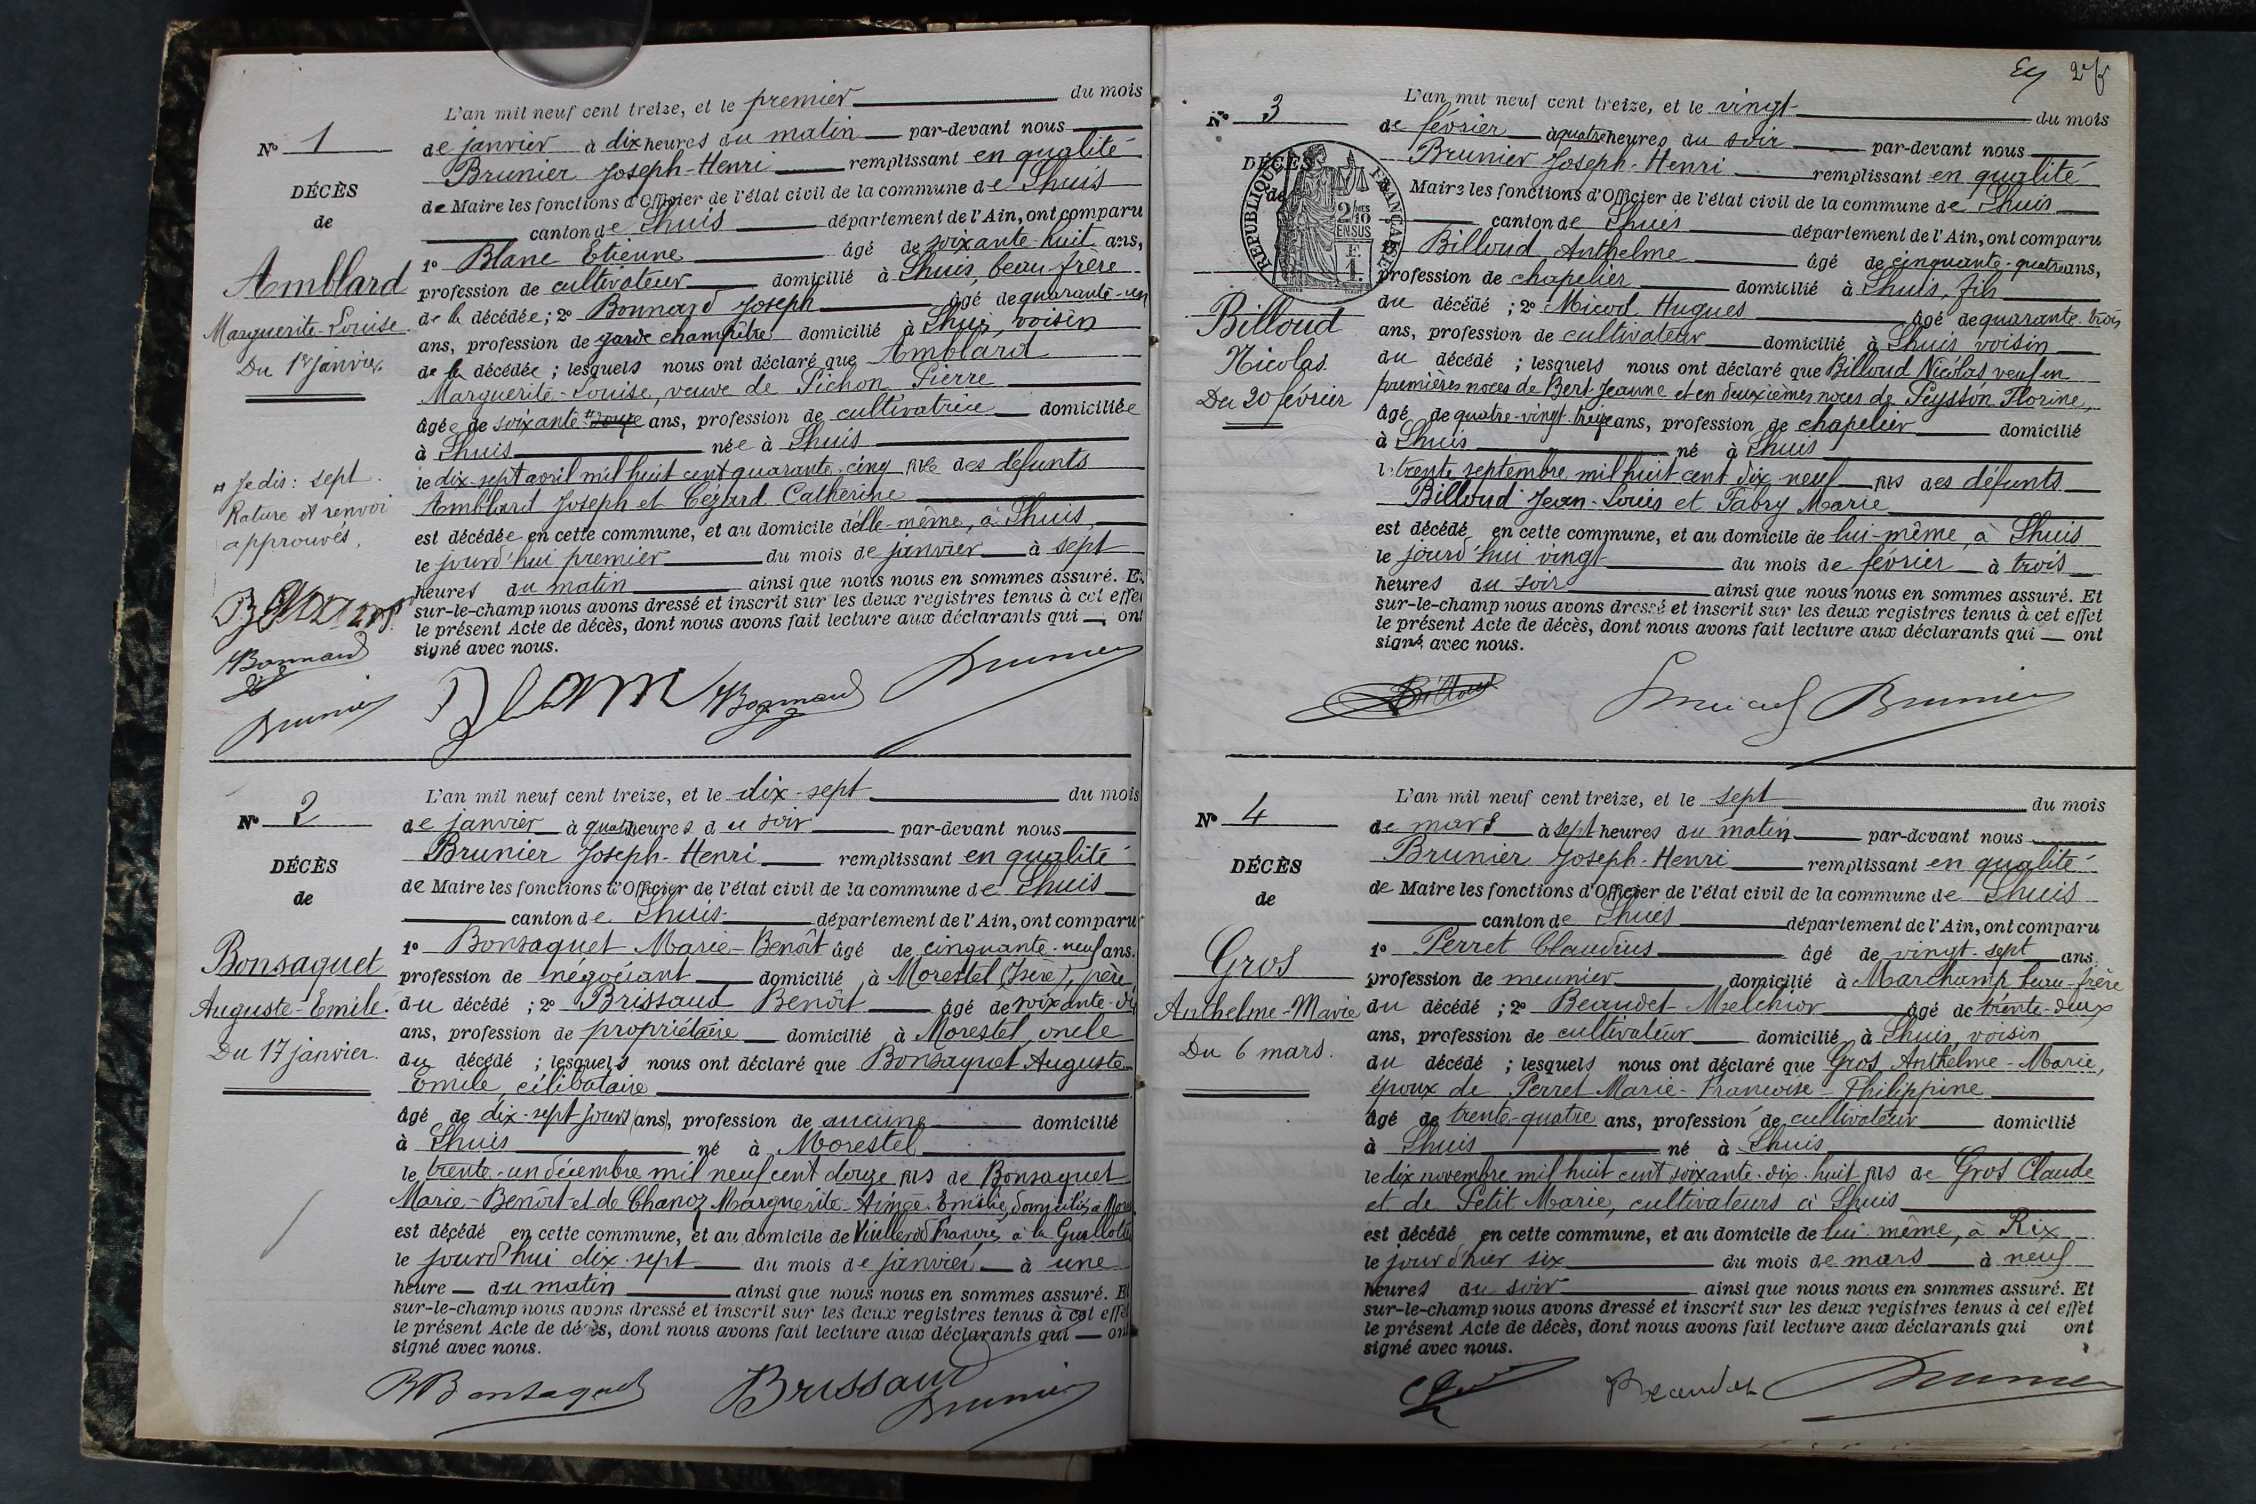 L'an mil neuf cent treize, et le premier du mois
N° 1
de janvier à dix heures du matin par-devant nous
Brunier Joseph-Henri remplissant en qualité
DÉCÈS
de Maire les fonctions d'Officier de l'état civil de la commune de Lhuis
de
canton de Lhuis département de l'Ain, ont comparu
1° Blanc Etienne âgé de soixante-huit ans,
Amblard
profession de cultivateur domicilié à Lhuis, beau-frère
de la décédée ; 2° Bonnard Joseph âgé de quarante-un
Marguerite-Louise.
ans, profession de garde champêtre domicilié à Lhuis, voisin
Du 1er janvier.
de la décédée ; lesquels nous ont déclaré que Amblard
Marguerite-Louise, veuve de Pichon Pierre
âgée de soixante # ans, profession de cultivatrice domiciliée
à Lhuis née à Lhuis
# Je dis : sept.
le dix-sept avril mil huit cent quarante-cinq fille des défunts
Rature et renvoi
Amblard Joseph et Cézard Catherine
approuvés.
est décédée en cette commune, et au domicile d'elle-même, à Lhuis,
le jourd'hui premier du mois de janvier à sept
heures du matin ainsi que nous nous en sommes assuré. Et
sur-le-champ nous avons dressé et inscrit sur les deux registres tenus à cet effet
le présent Acte de décès, dont nous avons fait lecture aux déclarants qui ont
signé avec nous.
Bonnard
Brunier
Blanc Bonnard Brunier
L'an mil neuf cent treize, et le dix-sept du mois
N° 2
de janvier à quatre heures du soir par-devant nous
Brunier Joseph-Henri remplissant en qualité
DÉCÈS
de Maire les fonctions d'Officier de l'état civil de la commune de Lhuis
de
canton de Lhuis département de l'Ain, ont comparu
1° Bonsaquet Marie-Benoît âgé de cinquante-neuf ans.
Bonsaquet
profession de négociant domicilié à Morestel (Isère), père
Auguste-Emile.
du décédé ; 2° Brissaud Benoît âgé de soixante-dix
ans, profession de propriétaire domicilié à Morestel, oncle
Du 17 janvier.
du décédé ; lesquels nous ont déclaré que Bonsaquet Auguste
Emile, célibataire
âgé de dix-sept jours (ans), profession de aucune domicilié
à Lhuis né à Morestel
le trente-un décembre mil neuf cent douze fils de Bonsaquet
Marie-Benoît et de Chanoz Marguerite-Aimée-Emélie, domiciliés à
est décédé en cette commune, et au domicile de François, à la
le jourd'hui dix-sept du mois de janvier à une
heure du matin ainsi que nous nous en sommes assuré. Et
sur-le-champ nous avons dressé et inscrit sur les deux registres tenus à cet effet
le présent Acte de décès, dont nous avons fait lecture aux déclarants qui ont
signé avec nous.
Bonsaquet Brissaud Brunier
L'an mil neuf cent treize, et le vingt du mois
N° 3
de février à quatre heures du soir par-devant nous
Brunier Joseph-Henri remplissant en qualité
DÉCÈS
de
RÉPUBLIQUE FRANÇAISE
2/10 EN SUS
Maire les fonctions d'Officier de l'état civil de la commune de Lhuis
canton de Lhuis département de l'Ain, ont comparu
Billoud Anthelme âgé de cinquante-quatre ans,
profession de chapelier domicilié à Lhuis, fils
Billoud
du décédé ; 2° Micod Hugues âgé de quarante-trois
ans, profession de cultivateur domicilié à Lhuis voisin
Nicolas.
du décédé ; lesquels nous ont déclaré que Billoud Nicolas veuf en
Du 20 février
premières noces de Bert Jeanne et en deuxièmes noces de Peysson Florine,
âgé de quatre-vingt-treize ans, profession de chapelier domicilié
à Lhuis né à Lhuis
le trente septembre mil huit cent dix-neuf fils des défunts
Billoud Jean-Louis et Fabry Marie
est décédé en cette commune, et au domicile de lui-même, à Lhuis
le jourd'hui vingt du mois de février à trois
heures du soir ainsi que nous nous en sommes assuré. Et
sur-le-champ nous avons dressé et inscrit sur les deux registres tenus à cet effet
le présent Acte de décès, dont nous avons fait lecture aux déclarants qui ont
signé avec nous.
Billoud Brunier
L'an mil neuf cent treize, et le sept du mois
N° 4
de mars à sept heures du matin par-devant nous
Brunier Joseph-Henri remplissant en qualité
DÉCÈS
de Maire les fonctions d'Officier de l'état civil de la commune de Lhuis
de
canton de Lhuis département de l'Ain, ont comparu
1° Perret Claudius âgé de vingt-sept ans.
Gros
profession de meunier domicilié à Marchamp beau-frère
Anthelme-Marie
du décédé ; 2° Beaudet Melchior âgé de trente-deux
ans, profession de cultivateur domicilié à Lhuis, voisin
Du 6 mars.
du décédé ; lesquels nous ont déclaré que Gros Anthelme-Marie,
époux de Perret Marie-Françoise-Philippine
âgé de trente-quatre ans, profession de cultivateur domicilié
à Lhuis né à Lhuis
le dix novembre mil huit cent soixante-dix-huit fils de Gros Claude
et de Petit Marie, cultivateurs à Lhuis
est décédé en cette commune, et au domicile de lui-même, à Rix
le jour d'hier six du mois de mars à neuf
heures du soir ainsi que nous nous en sommes assuré. Et
sur-le-champ nous avons dressé et inscrit sur les deux registres tenus à cet effet
le présent Acte de décès, dont nous avons fait lecture aux déclarants qui ont
signé avec nous.
Beaudet Brunier